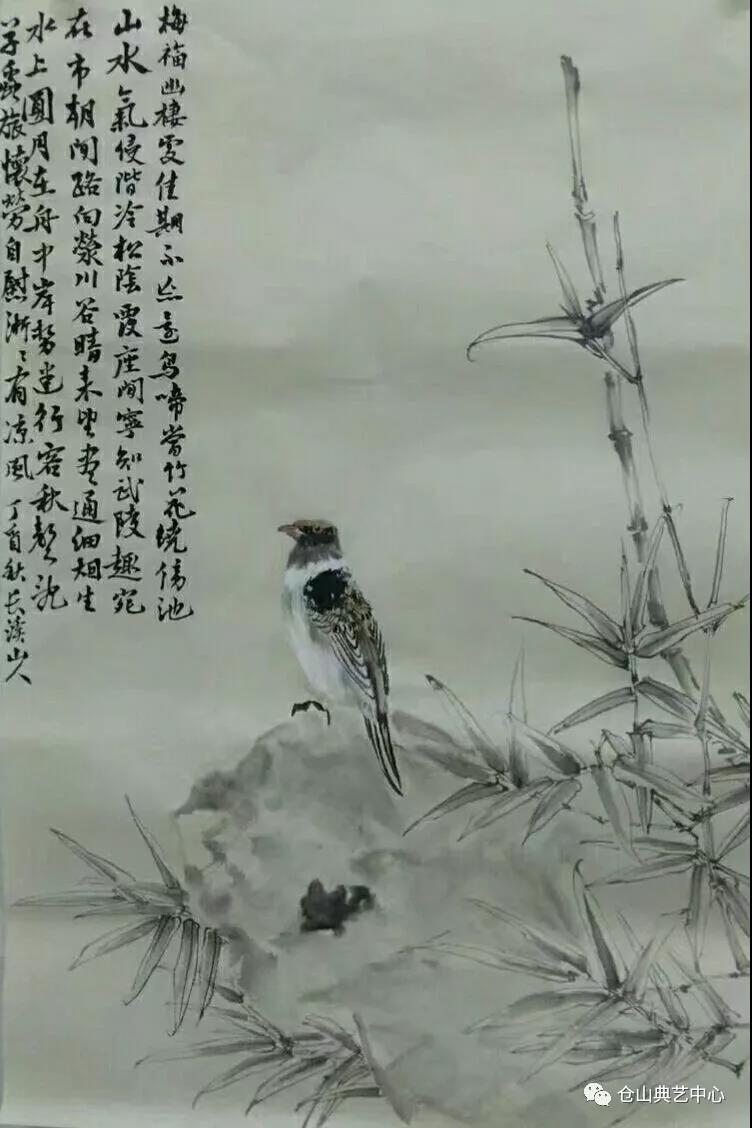 梅福幽棲處佳期不忘還鳥啼當竹花繞傍池
山水氣侵階冷松陰覆座間寧知武陵趣宛
在市朝間路向滎川谷晴来望盡通細烟生
水上圓月在舟中岸勢迷行客秋聲乱
草蟲旅懷勞自慰淅々有凉風 丁酉秋長溪山人
仓山典艺中心